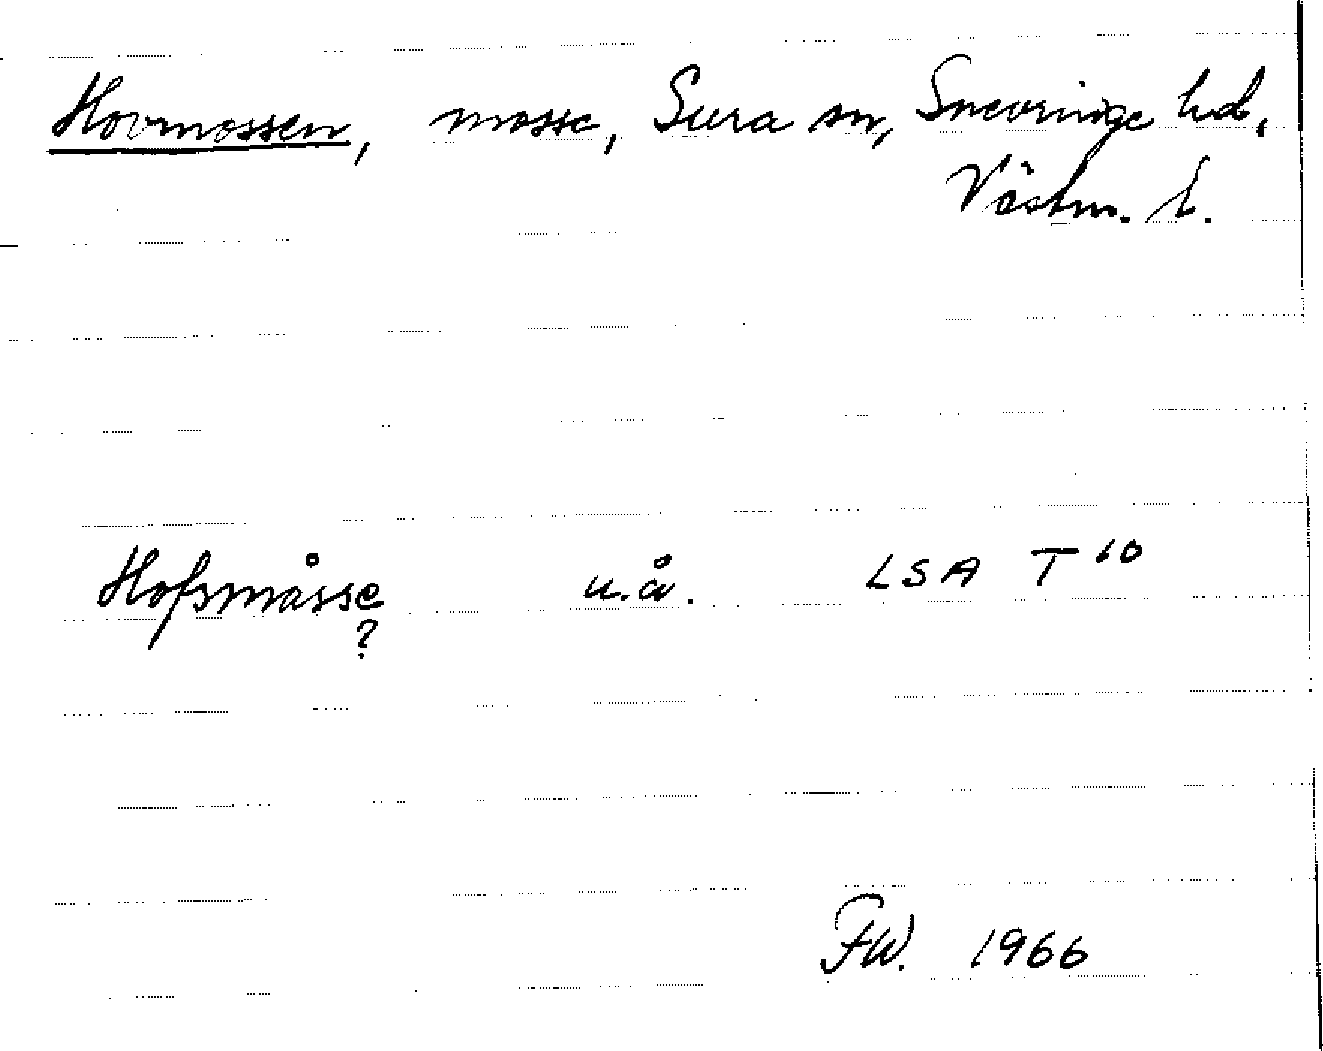 Hovmossen, mosse, Sura sn, Snevringe hd,
Västm. l.
Hofsmåsse u.å. LSA T 10
?
FW. 1966